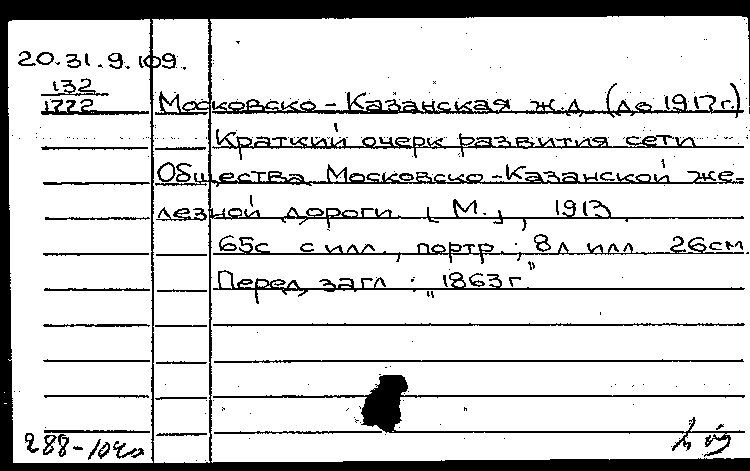 20.31.9.109.
132
1772
Московско-Казанская ж.д. (до 1917г.)
Краткий очерк развития сети
Общества Московско-Казанской же-
лезной дороги. [М.], 1913.
65с с илл., портр.; 8л илл 26см
Перед загл: „1863г."